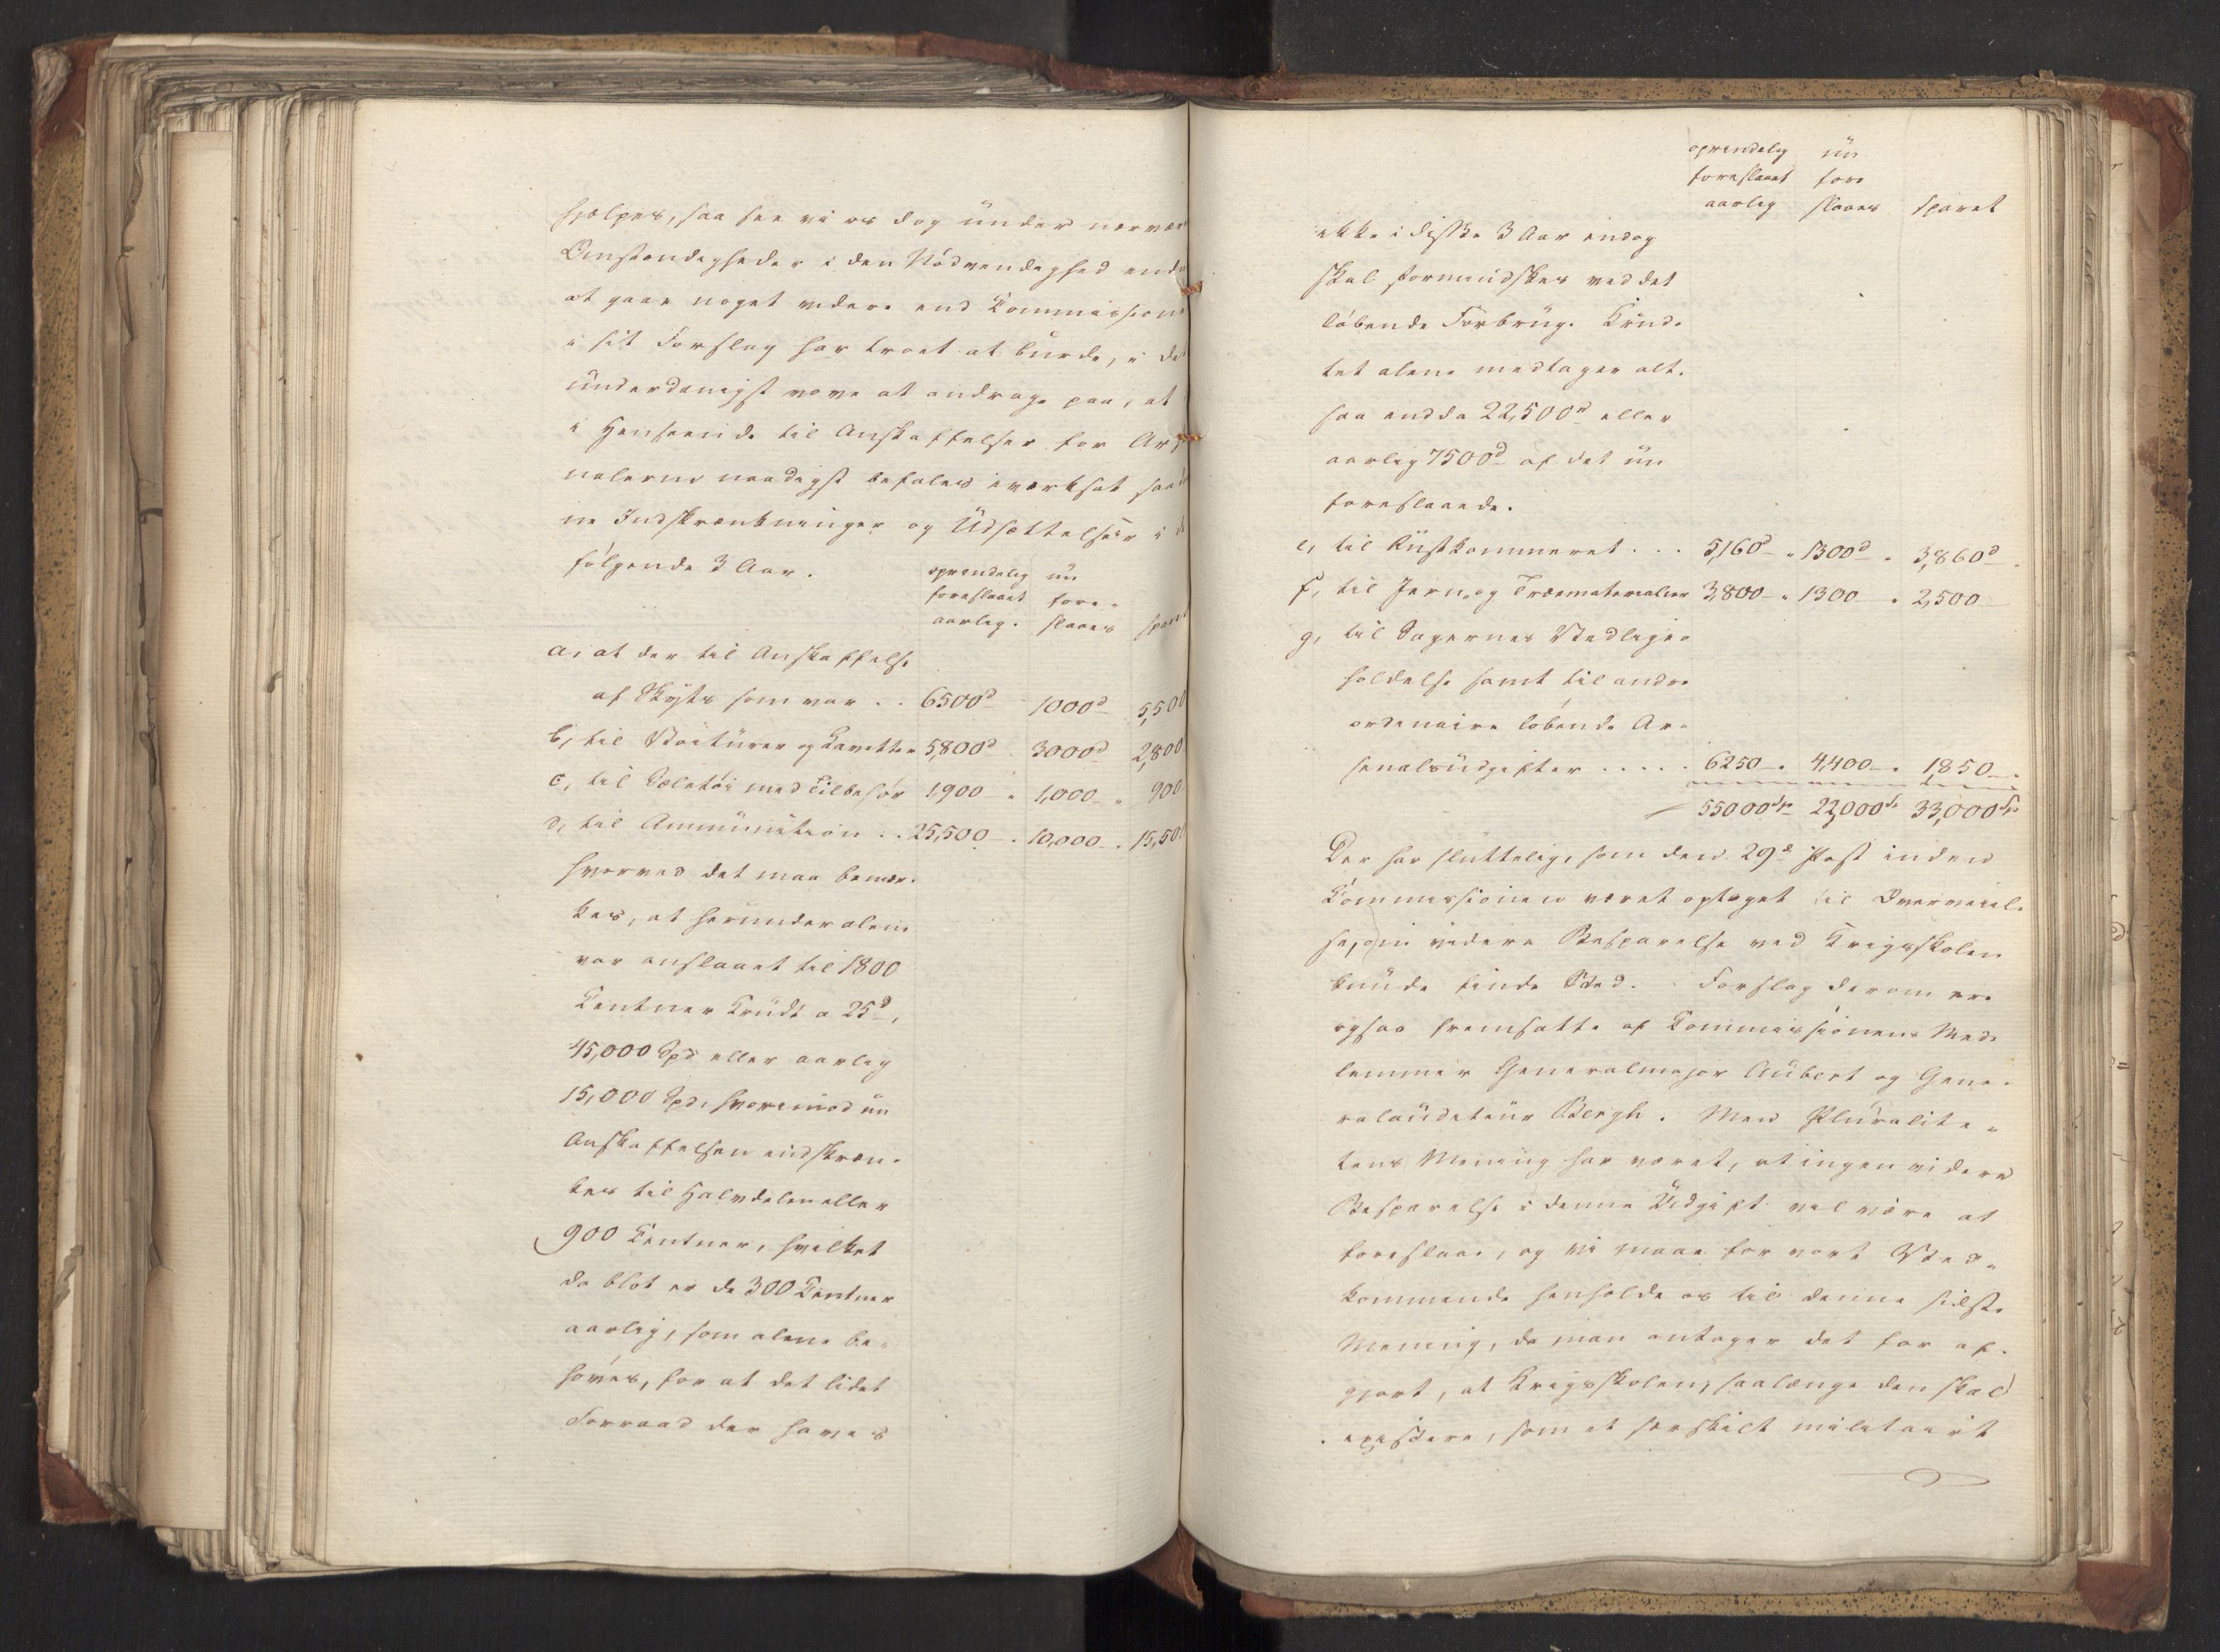 hjælpes, saa see vi os dog under nærvær
Omstændigheder i den Nödvendighed endn
at gaae noget videre end Commission
i sit Forslag har troet at burde, i de
underdanigst vove at andrage paa, at
i Henseende til Anskaffelser for Ars
nalerne naadigst befales iværksat saad
ne Indskrænkninger og Udsættelser i d
fölgende 3 Aar.
oprindelig nu
foreslaaet fore-
aarlig. slaaes spar
a, at der til Anskaffelse
af Skyts som var . . 6500d 1000d 5,500
b, til Voiturer og Lavetter 5,800d 3000d 2,800
c, til Sæletöi med Tilbehör 1,900 " 1,000 " 900
d, til Ammunition . . 25,500 . 10,000 . 15,500
hvorved det maa bemær-
kes, at herunder alene
var anslaaet til 1800
Centner Krudt a 25d,
45,000 Spd eller aarlig
15,000 Spd, hvorimod nu
Anskaffelsen indskræn-
kes til Halvdelen eller
900 Centner, hvilket
da blot er de 300 Centner
aarlig, som alene be-
höves, for at det lidet
Forraad der haves
oprindelig nu
foreslaaet fore
aarlig slaaes sparet
ikke i disse 3 Aar endog
skal formindskes ved det
löbende Forbrug. Krud-
tet alene medtager alt-
saa endda 22,500d eller
aarlig 7500d af det nu
foreslaaede.
e, til Rustkammeret . . . 5,160d " 1300d . 3,860d
f, til Jern og Træmaterialier 3,800 " 1300 . 2,500
g, til Sagernes Vedlige-
holdelse samt til andre
ordinaire löbende Ar-
senalsudgifter . . . . . 6250 . 4,400 . 1,850
55000Sp 22,000Sp 33,000Sp
Der har sluttelig, som den 29de Post inden
Commissionen været optaget til Overveiel-
se, om videre Besparelse ved Krigsskolen
kunde finde Sted. Forslag derom ere
ogsaa fremsatte af Commissionens Med-
lemmer Generalmajor Aubert og Gene-
ralauditeur Bergh. Men Pluralite-
tens Mening har været, at ingen videre
Besparelse i denne Udgift vil være at
foreslaae, og vi maae for vort Ved-
kommende henholde os til denne sidste
Mening, da man antager det for af-
gjort, at Krigsskolen, saalænge den skal
existere, som et særskilt militairt